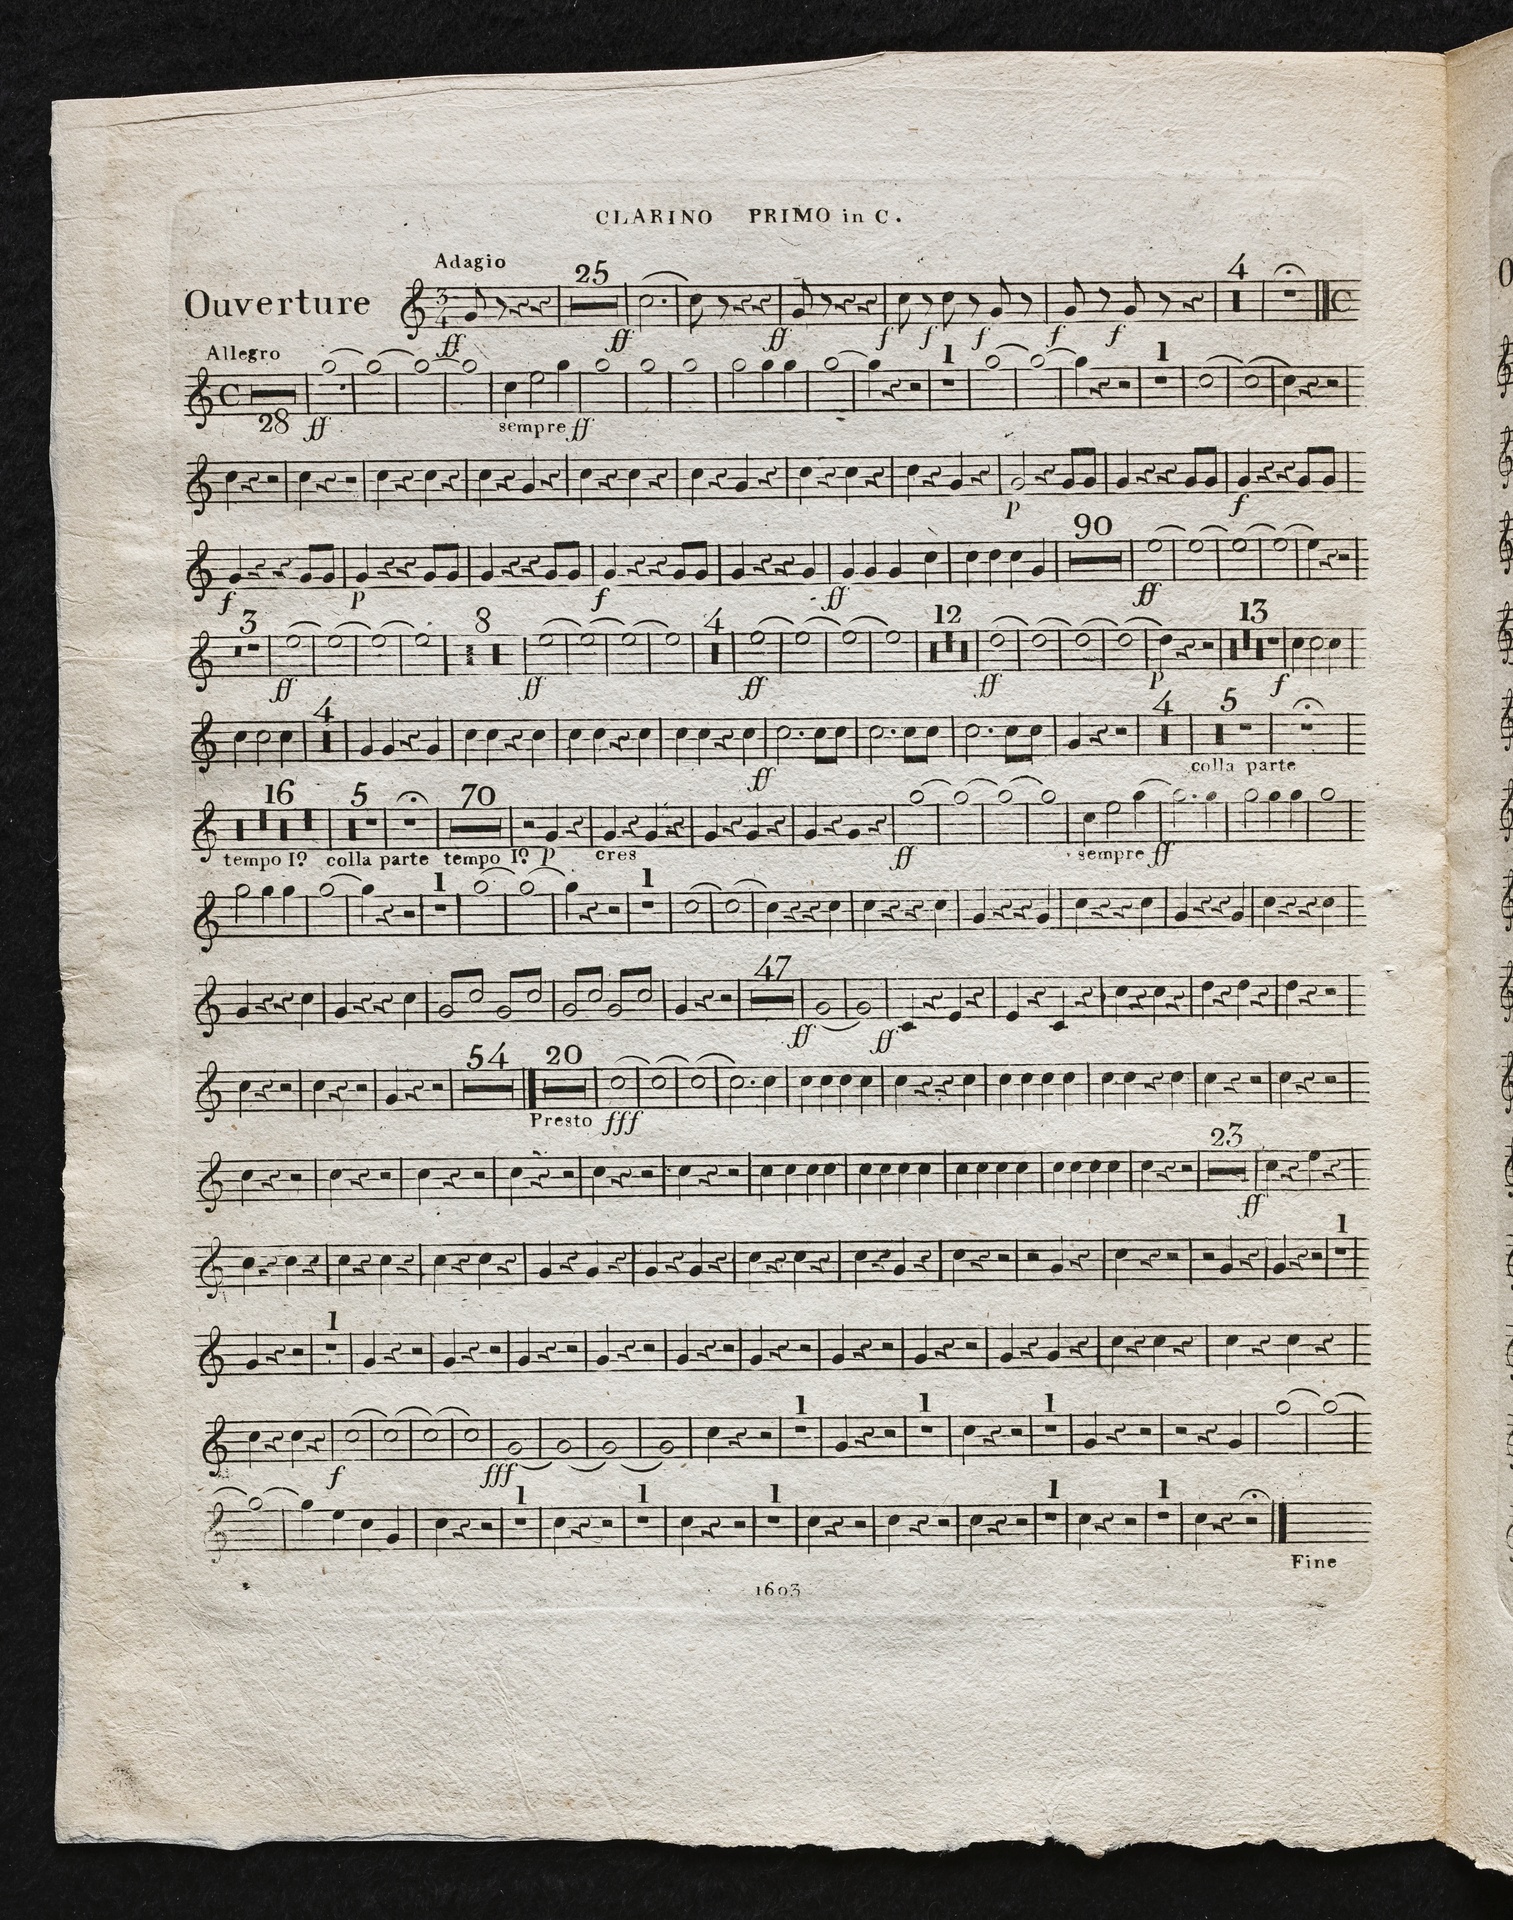 CLARINO PRIMO in C.
Adagio
25
4
Ouverture
3
4
C
ff
ff
ff
f
f
f
f
f
Allegro
1
1
C
28
ff
sempre ff
p
f
90
f
p
f
ff
ff
3
8
4
12
13
ff
ff
ff
ff
p
f
4
4
5
ff
colla parte
16
5
70
tempo Iº
colla parte
tempo Iº
p
cres
ff
sempre ff
1
1
47
ff
ff
54
20
Presto fff
23
ff
1
1
1
1
1
f
fff
1
1
1
1
1
Fine
1603
O